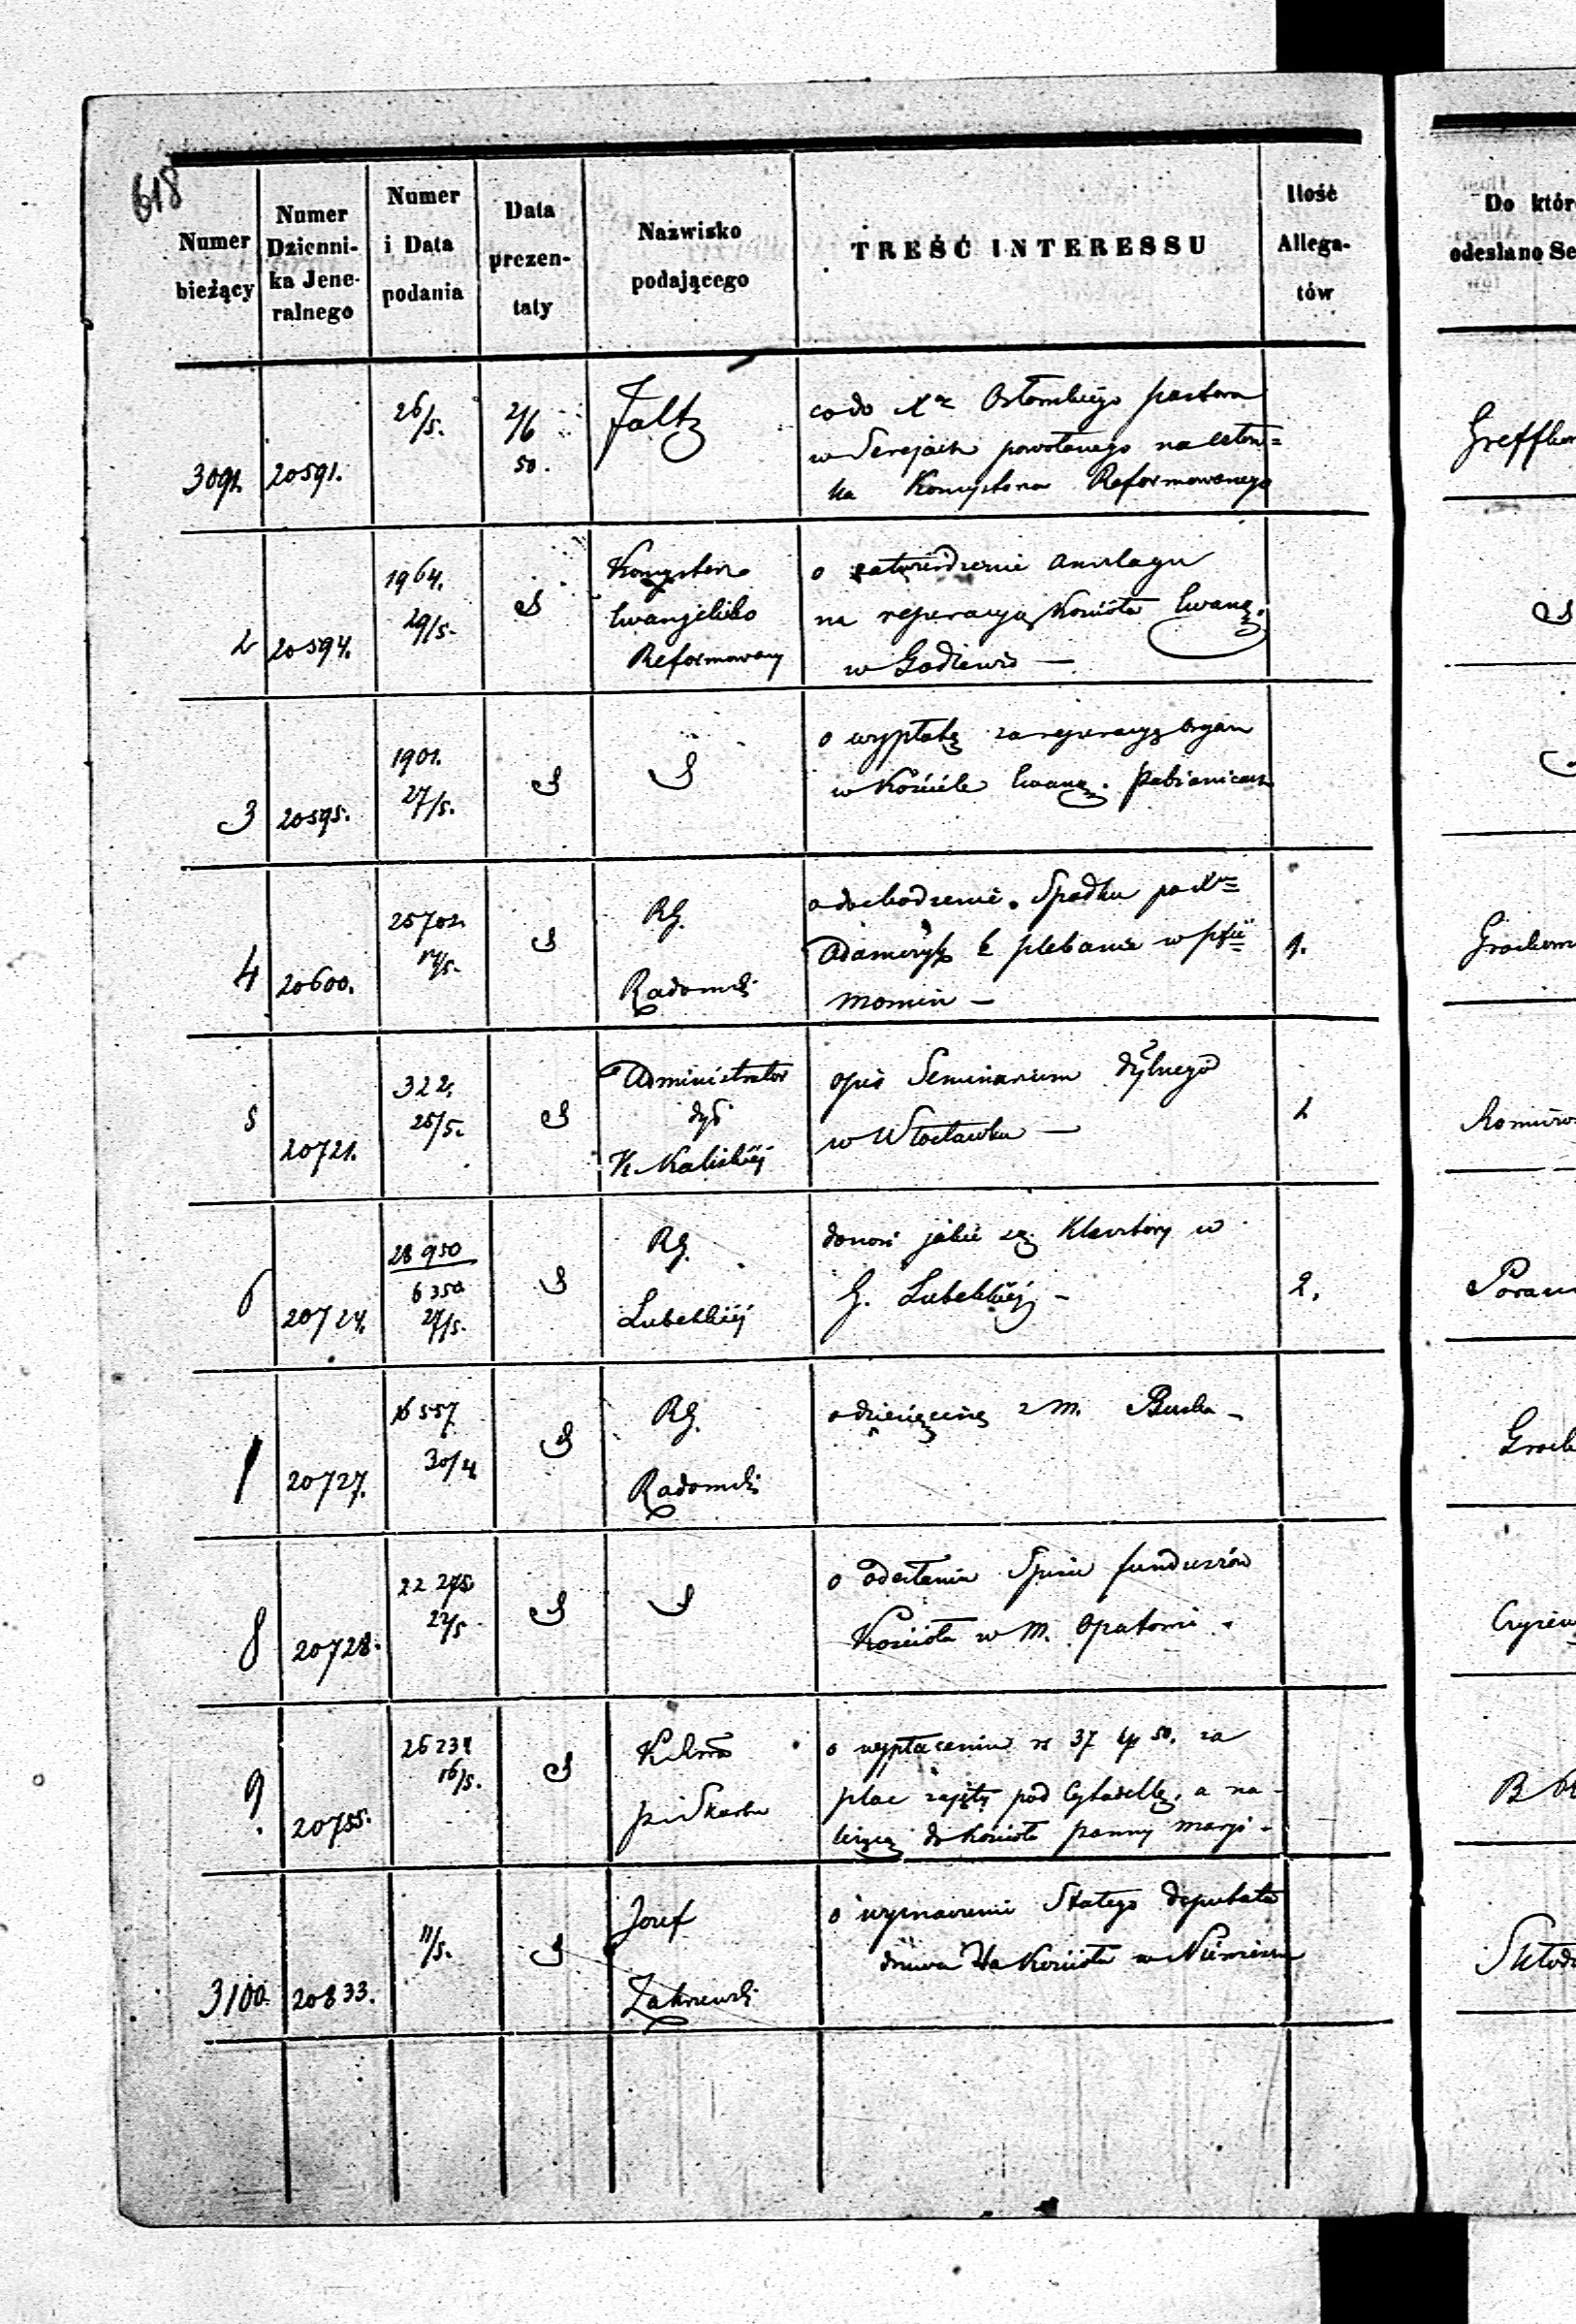 618
Numer bieżący
Numer Dzienni-ka Jene-ralnego
Numer i Data podania
Data prezen-taty
Nazwisko podającego
TREŚĆ INTERESSU
Ilość Allega-tów
Do któr
odesłano Se
3091. 20591. 26/5. 2/6 50. Faltz
co do Xa pastora
w Serejach powołanego na człon=
ka Konsystorza Reformowanego
2 20594. 1964. 29/5. Konsystorz
Ewangelicko
Reformowany
o zatwierdzenie anszlagu
na reperacyą Kościoła Ewang.
w Godlewie —
3 20595. 1901. 27/5.
o wypłatę za reperacyę organ
w Kościele Ewang. Pabianicach
4 20600. 25702. RG.
Radomski
o dochodzenie Spadku po Xu
Adamczyk z plebanie w
Momin —
1.
5 20721. 322. 25/5. Administrator
dył
K. Kaliskiéj
opis Seminarium dylnego
w Włocławku —
6 20724. 28950
6350
27/5.
RG.
Lubelskiéj
donosi jakie są Klasztory w
G. Lubelskiéj —
2.
20727. 16557 30/4 RG.
Radomski
o dziesięcinę z m. Buska —
8 20728. 22275 22/5
o odesłanie Spisu funduszów
Kościoła w M. Opatowie
9. 20755. 26234 16/5.
p i Skarbu
o wypłacenie rs 37 kp 50. za
plac zajęty pod Cytadellę, a na-
leżący do Kościoła panny Maryi -
3100. 20833. 11/5. Jozef
Zakrzewski
o wyznaczenie Stałego deputatu
drzewa dla Kościoła w